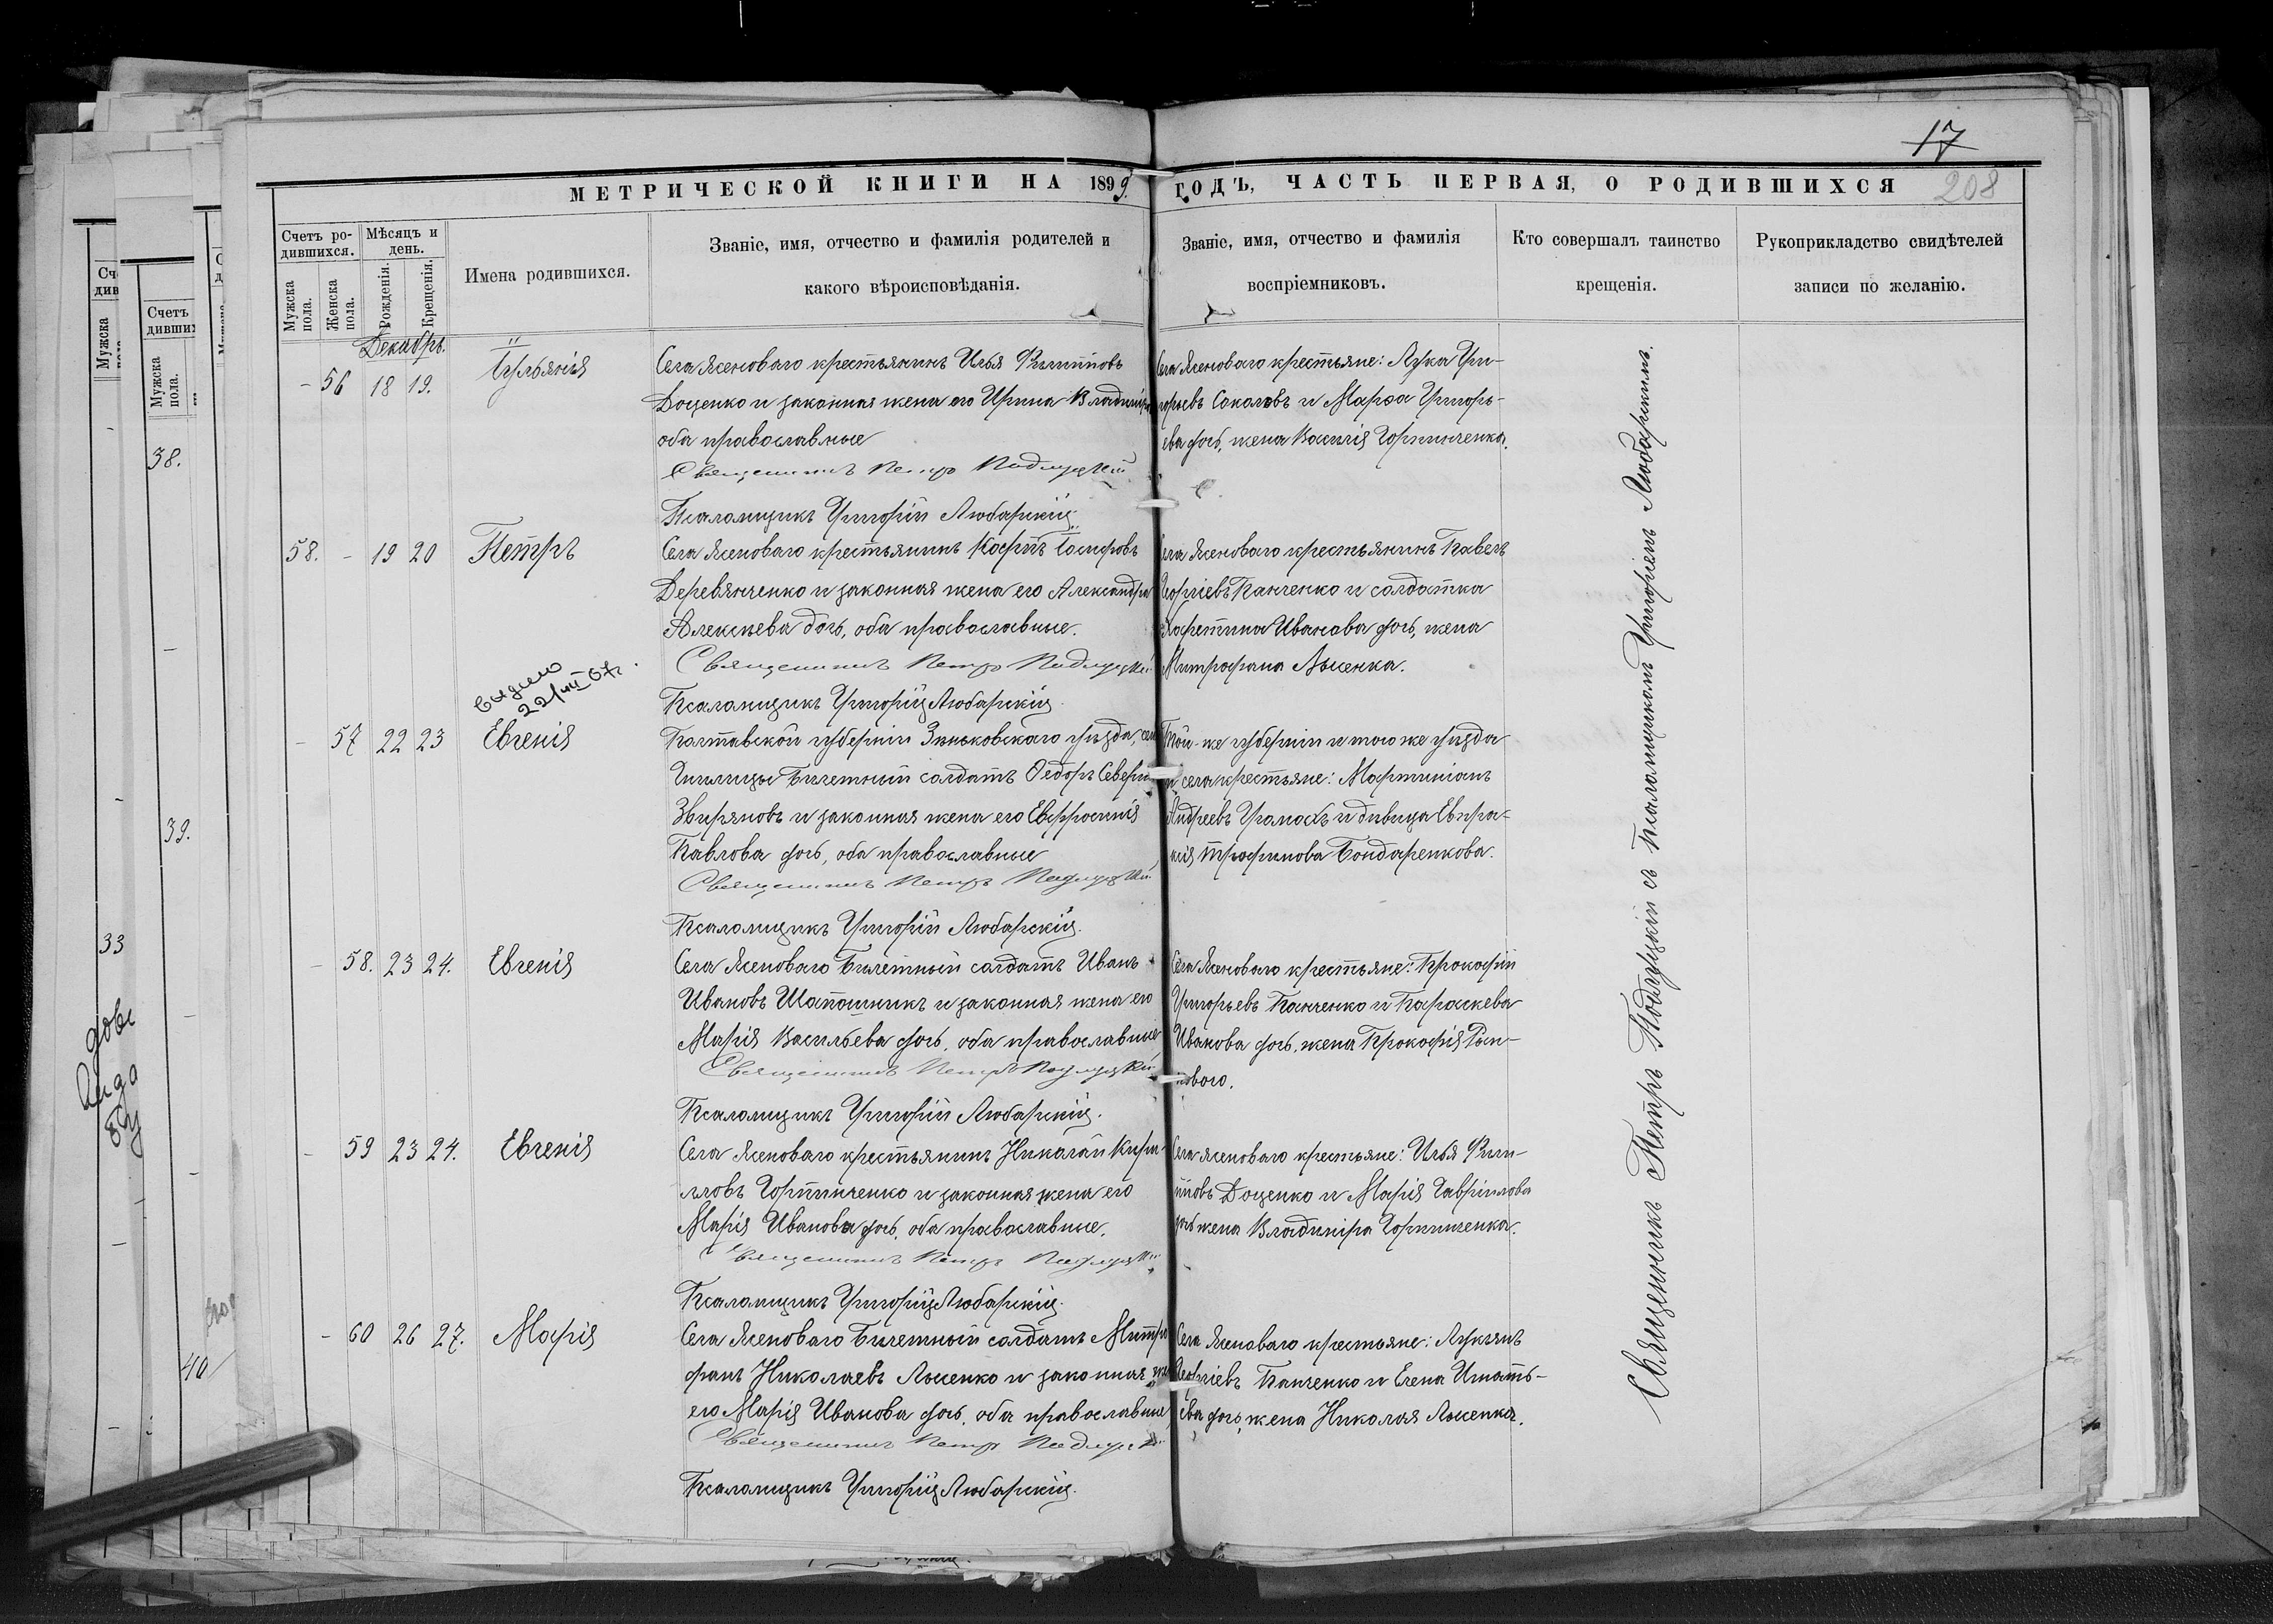 17
МЕТРИЧЕСКОЙ КНИГИ НА 1899 ГОДЪ, ЧАСТЬ ПЕРВАЯ, О РОДИВШИХСЯ
208
Счетъ ро-
дившихся.
Мужска
пола.
Женска
пола.
Мѣсяцъ и
день.
Рожденія.
Крещенія.
Имена родившихся.
Званіе, имя, отчество и фамилія родителей и
какого вѣроисповѣданія.
Званіе, имя, отчество и фамилія
воспріемниковъ.
Кто совершалъ таинство
крещенія.
Рукоприкладство свидѣтелей
записи по желанію.
Декабрь.
- 56 18 19. Іуліанія
Села Ясеноваго крестьянинъ Илья Филиповъ
Доценко и законная жена его Ирина
оба православные
Священникъ Петръ Подлуцкій
Псаломщикъ Григорій Любарскій
Села Ясеноваго крестьяне: Лука Гри-
горьевъ Соколовъ и Марѳа Григорь-
ева дочь, жена Василія Горпинченка.
58. - 19 20 Петръ
Села Ясеноваго крестьянинъ Іосифовъ
Деревянченко и законная жена его Александра
Алексѣева дочь, оба православные.
Священникъ Петръ Подлуцкій
Псаломщикъ Григорій Любарскій
Села Ясеноваго крестьянинъ Павелъ
Георгіевъ Панченко и солдатка
Харитина Иванова дочь, жена
Митрофана Лысенка.
выдано
22/III 07г.
- 57 22 23 Евгенія
Полтавской губерніи Зиньковскаго уѣзда, села
Билетный солдатъ Ѳедоръ
Звиряновъ и законная жена его Евфросинія
Павлова дочь, оба православные
Священникъ Петръ Подлуцкій
Псаломщикъ Григорій Любарскій.
Той-же губерніи и того же уѣзда
и села крестьяне: Мартиніанъ
Андреевъ и дѣвица Евпра-
ксія Трофимова Бондаренкова.
- 58. 23 24. Евгенія
Села Ясеноваго Билетный солдатъ Иванъ
Ивановъ Шапошникъ и законная жена его
Марія Васильева дочь, оба православные
Священникъ Петръ Подлуцкій
Псаломщикъ Григорій Любарскій.
Села Ясеноваго крестьяне: Прокофій
Григорьевъ Панченко и Параскева
Иванова дочь, жена Прокофія
- 59 23 24. Евгенія
Села Ясеноваго крестьянинъ Николай Кири-
лловъ Горпинченко и законная жена его
Марія Иванова дочь, оба православные.
Священникъ Петръ Подлуцкій
Псаломщикъ Григорій Любарскій.
Села Ясеноваго крестьяне: Илья Фили-
повъ Доценко и Марія Гавріилова
дочь жена Владиміра Горпинченка.
- 60 26 27. Марія
Села Ясеноваго Билетный солдатъ Митро
фанъ Николаевъ Лысенко и законная жена
его Марія Иванова дочь, оба православные
Священникъ Петръ Подлуцкій
Псаломщикъ Григорій Любарскій.
Села Ясеноваго крестьяне: Лукіянъ
Георгіевъ Панченко и Елена Игнать-
ева дочь, жена Николая Лысенка.
Священникъ Петръ Подлуцкій съ Псаломщикомъ Григоріемъ Любарскимъ.
38.
39.
33
40